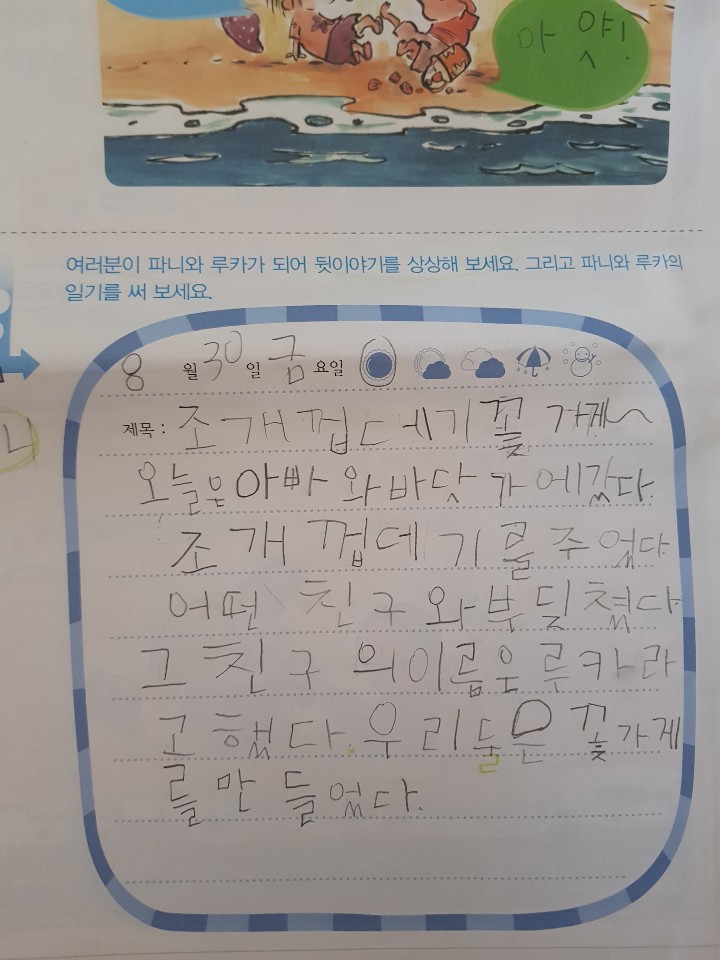 아 얏!
여러분이 파니와 루카가 되어 뒷이야기를 상상해 보세요. 그리고 파니와 루카의
일기를 써 보세요.
8월 30일 금요일
제목 : 조개껍데기꽃 가게~
오늘은아빠 와바닷 가에갔다.
조개 껍데기를주었다
어떤 친구와부딪쳤다
그친구의이름은루카라
고했다.우리둘은꽃가게
를만들었다.
니